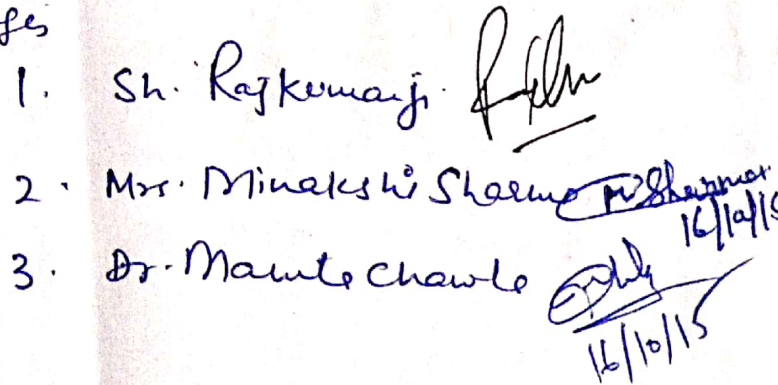 1. Sh. Rajkumarji
2. Mrs. Minakshi Sharma M Sharma
16/10/15
3. Dr. Mamta Chawla
16/10/15